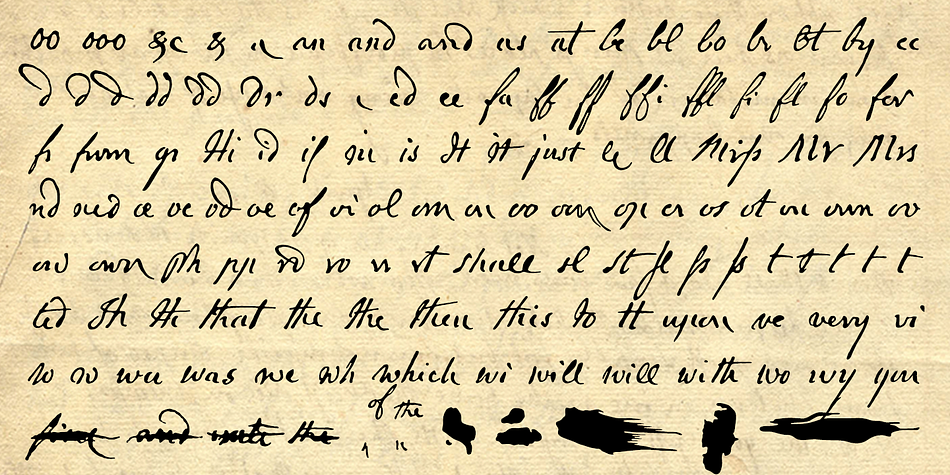 oo ooo &c & a an and and as at be bl bo br Et by cc
d d d dd dd Dr ds ed ee fa ff ff ffi ffl fi fl fo for
fr from gr Hi id if in is It It just le ll Miss Mr Mrs
nd ned œ oc od oe of oi ol om on oo oon op or os ot ou own ov
ow own ph pp rd ro rr rt shall sl st ſl ſp ſs t t t t t
ted Th Th that the the then this to tt upon ve very vi
w w wa was we wh which wi will will with wo wy you
fine and unto the of the